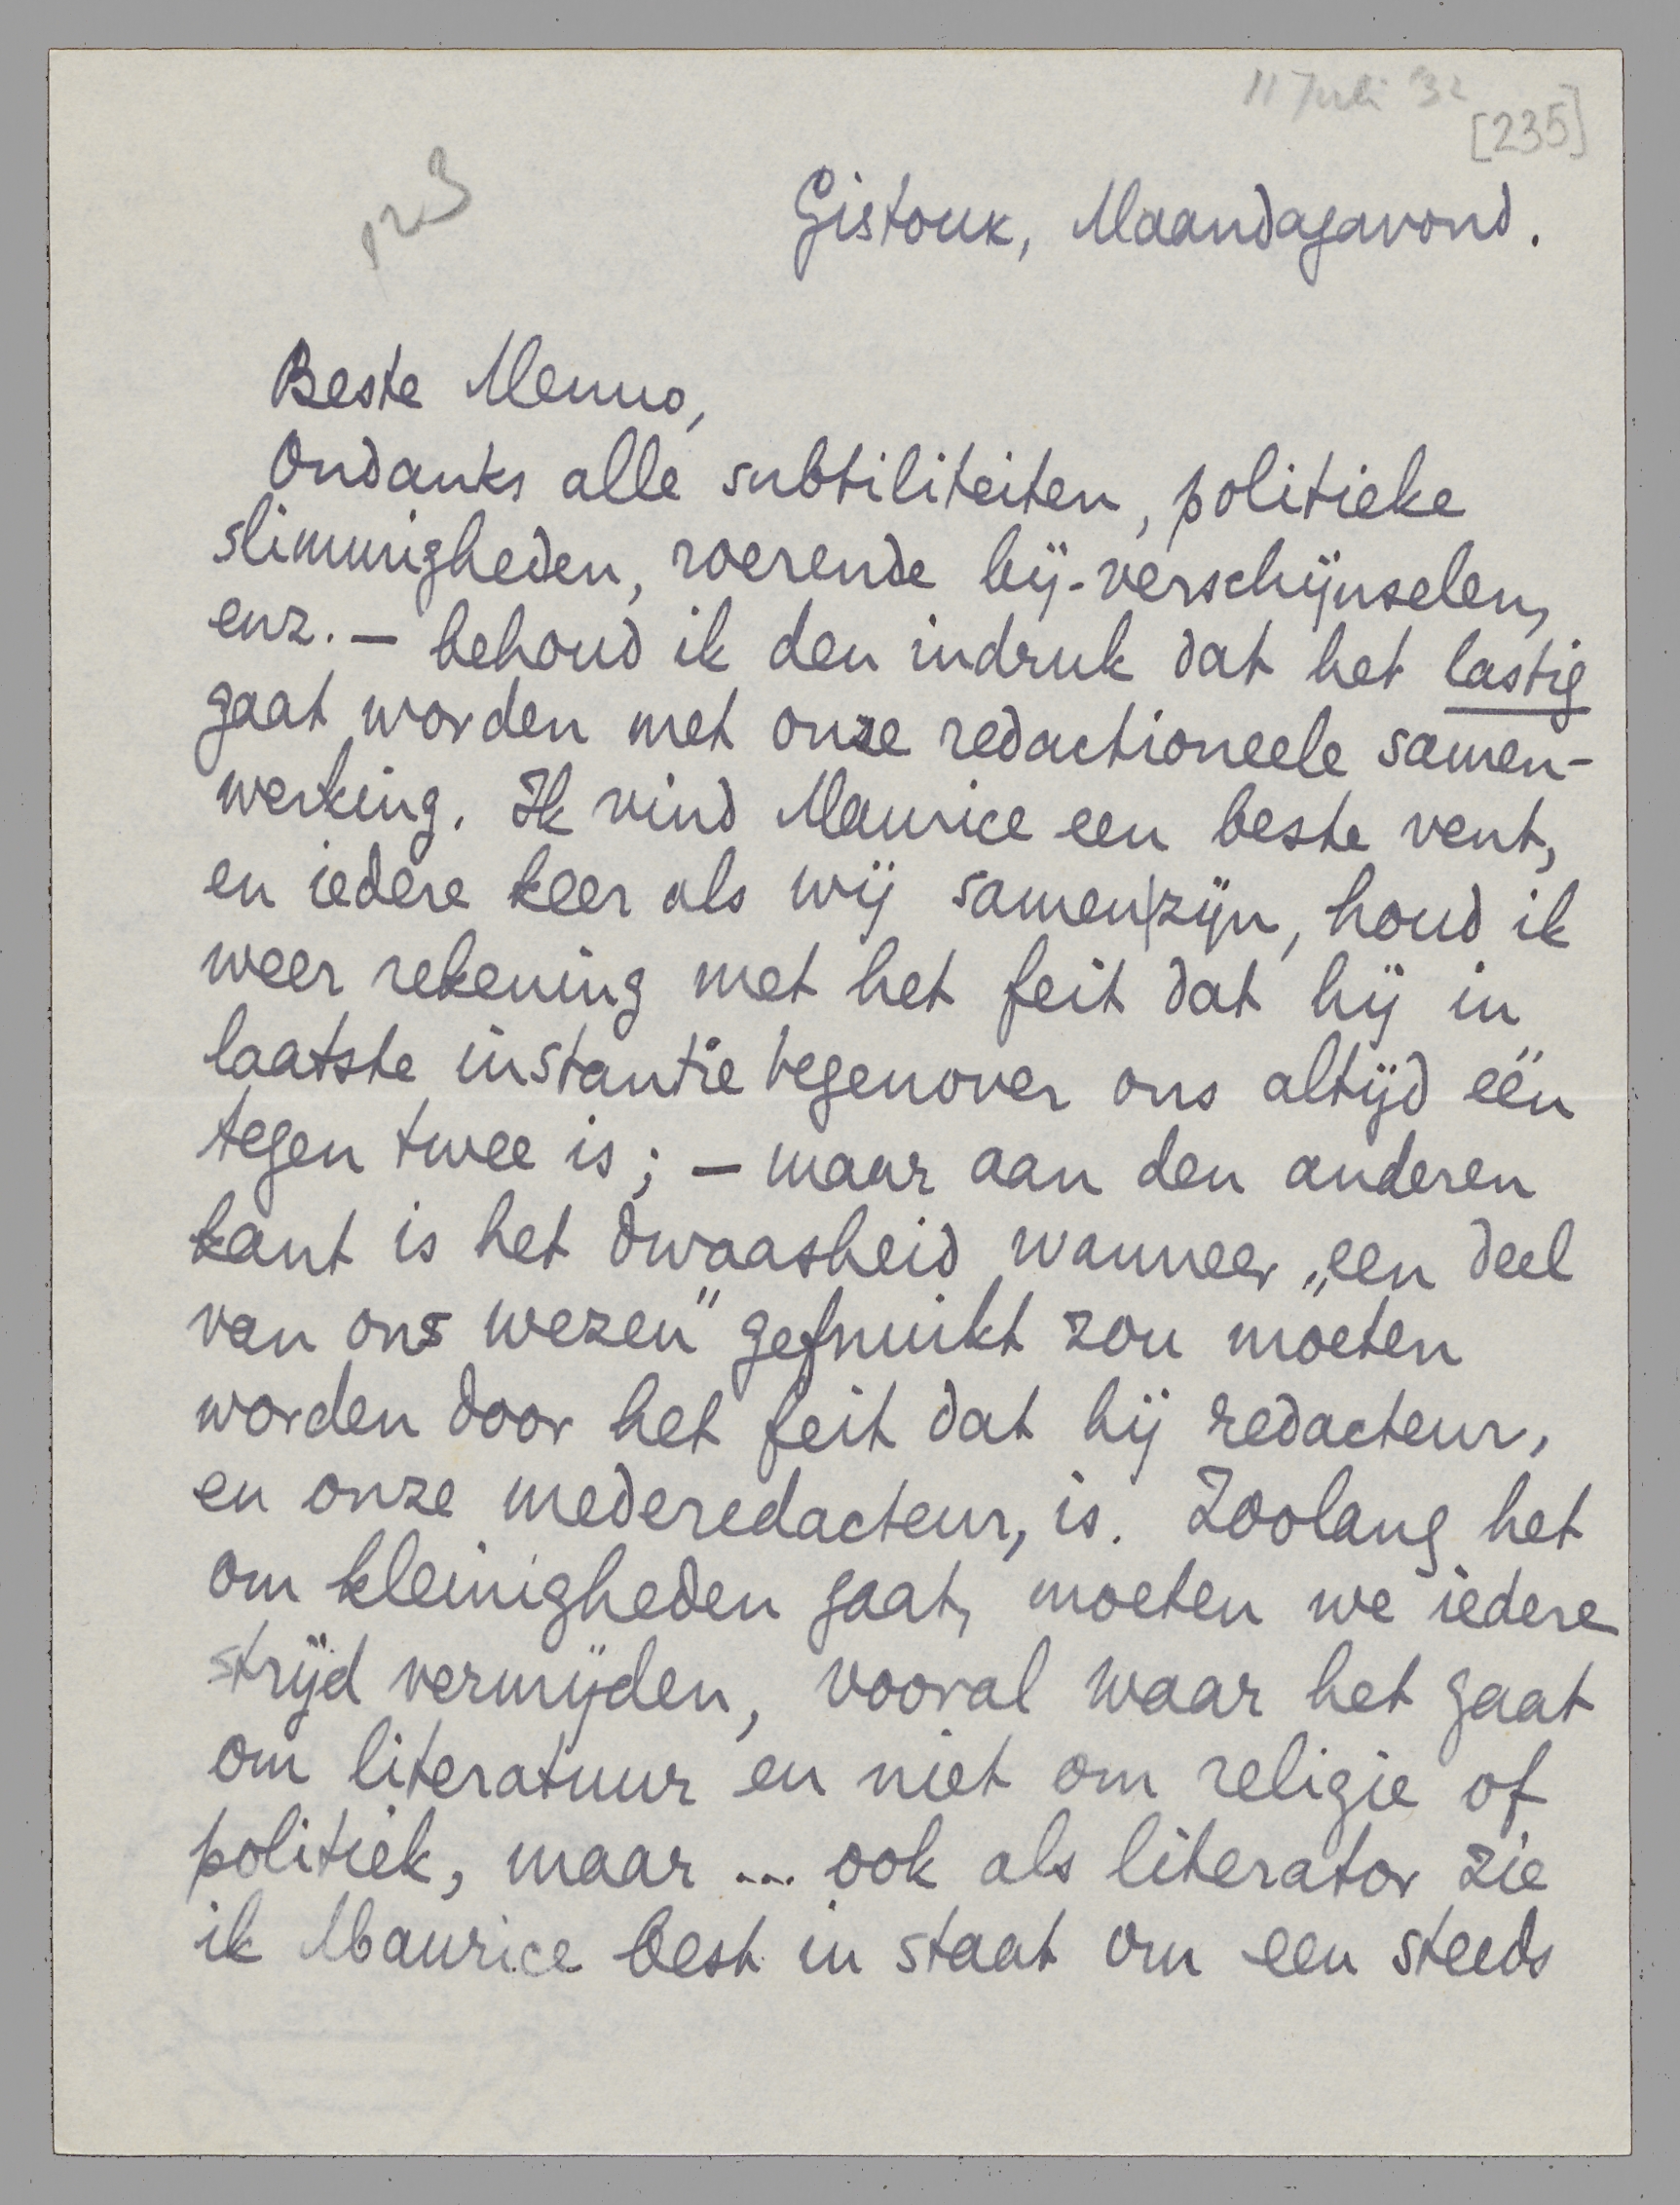 11 Juli 32
[235]
Gistoux, Maandagavond.
Beste Menno,
Ondanks alle subtiliteiten, politieke
slimmigheden, roerende bij-verschijnselen,
enz. — behoud ik den indruk dat het lastig
gaat worden met onze redactioneele samen-
werking. Ik vind Maurice een beste vent,
en iedere keer als wij samen|zijn, houd ik
weer rekening met het feit dat hij in
laatste instantie tegenover ons altijd één
tegen twee is; — maar aan den anderen
kant is het dwaasheid wanneer „een deel
van ons wezen" gefnuikt zou moeten
worden door het feit dat hij redacteur,
en onze mederedacteur, is. Zoolang het
om kleinigheden gaat, moeten we iedere
strijd vermijden, vooral waar het gaat
om literatuur en niet om religie of
politiek, maar ... ook als literator zie
ik Maurice best in staat om een steeds